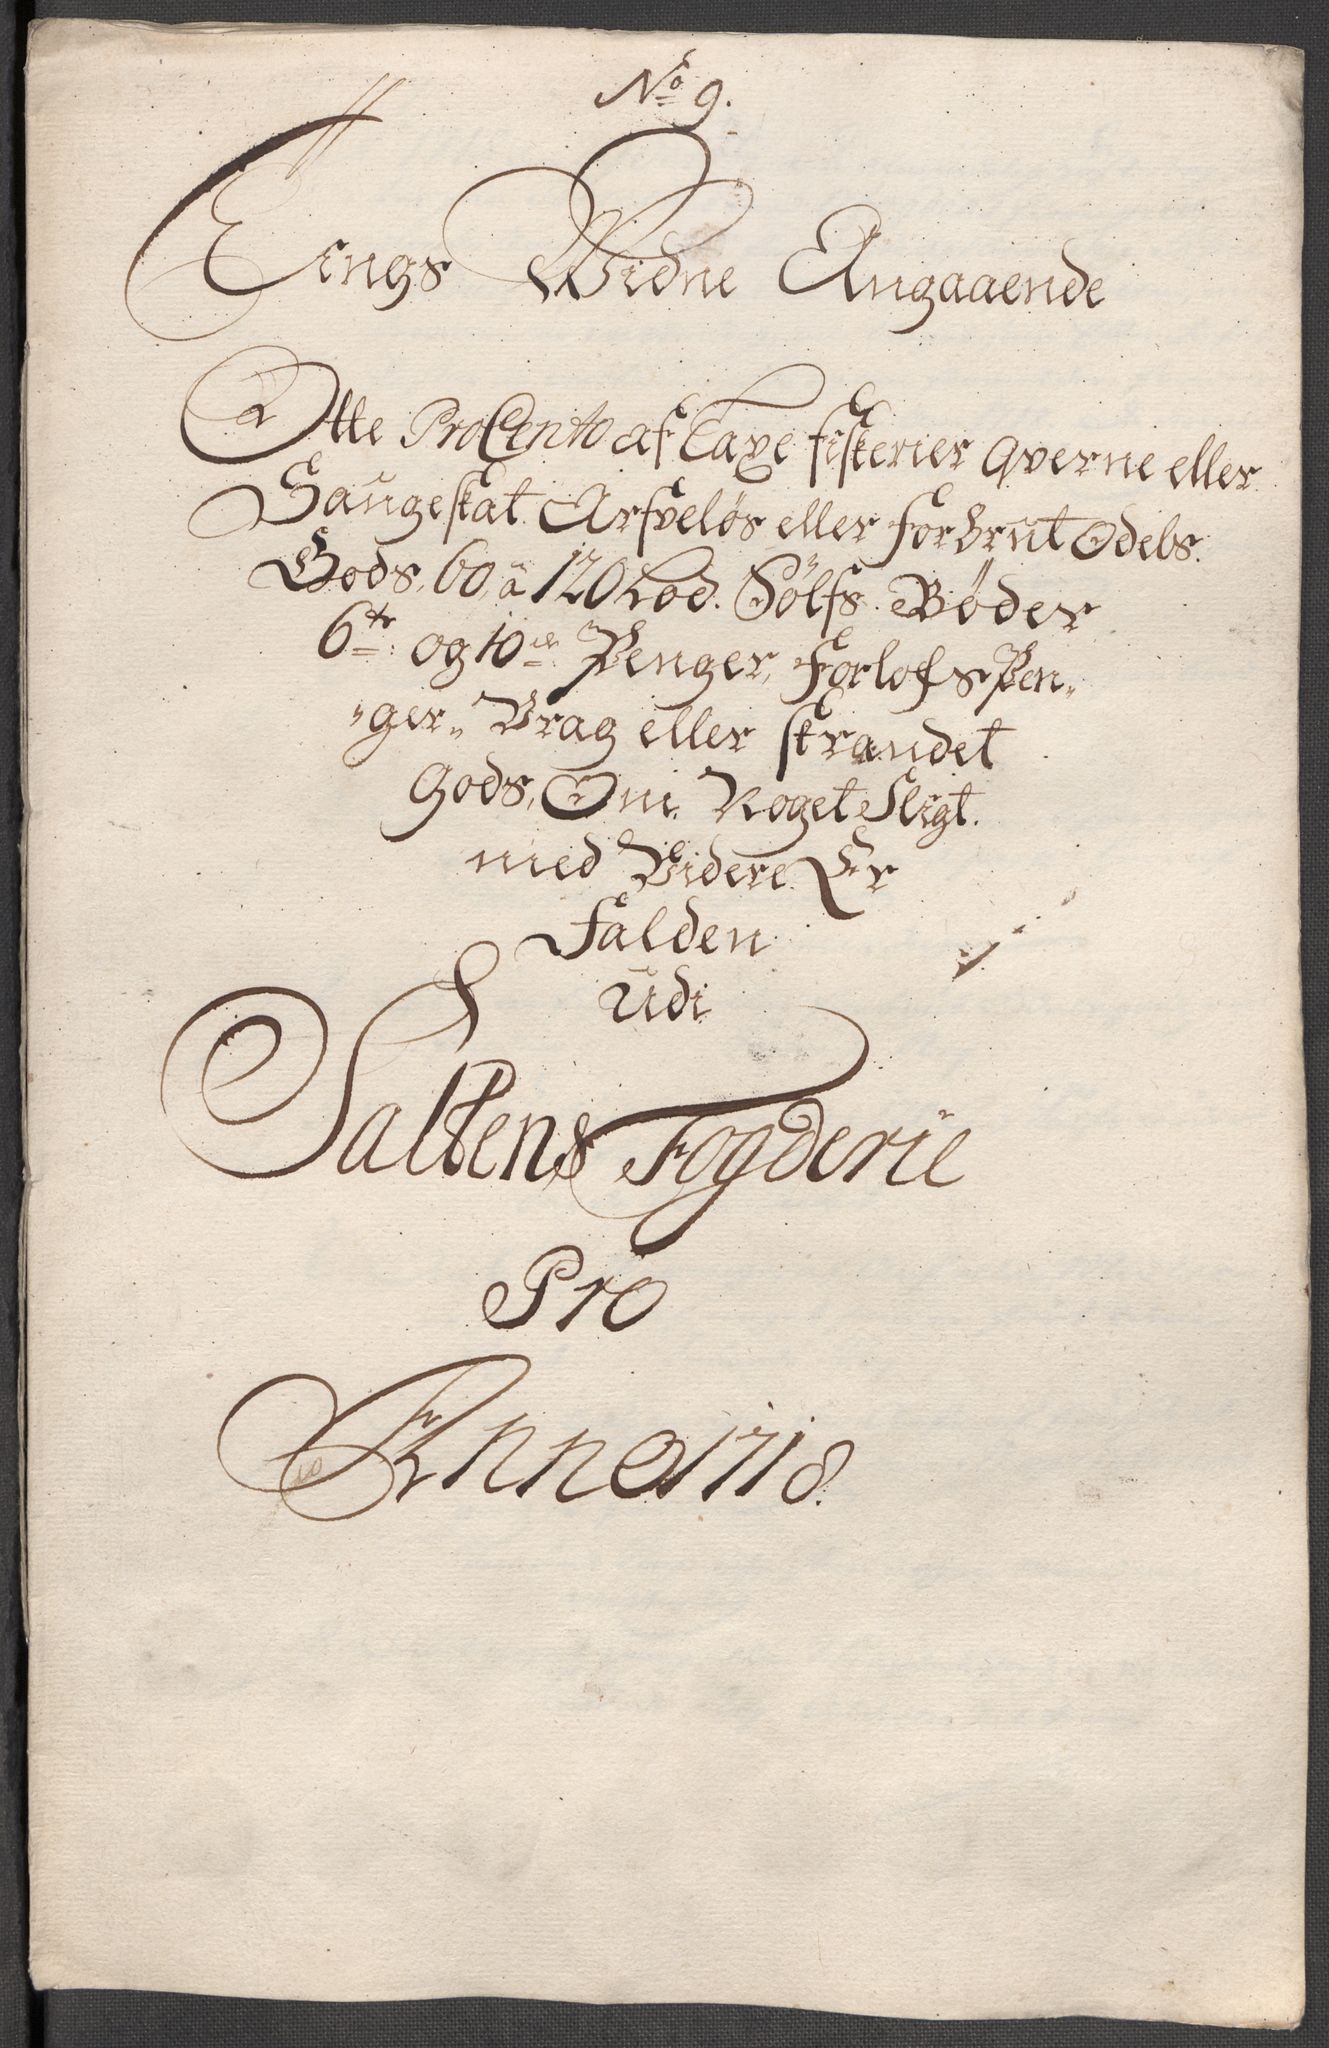 No 9.
Tings Widne Angaaende
Otte ProCento af Laxe fiskerier Qverne eller
Saugeskat. Arfveløs eller Forbrut Odels.
Gods, 60, a 120 Lod. Sölfs. Bøder
6te og 10de Penger, Forlofs Pen„
„ger„ Vrag eller strandet
Gods, Om. Noget Sligt.
med Videre. Er
Falden
Udi
Saltens Fogderie
Pro
Anno 1718.